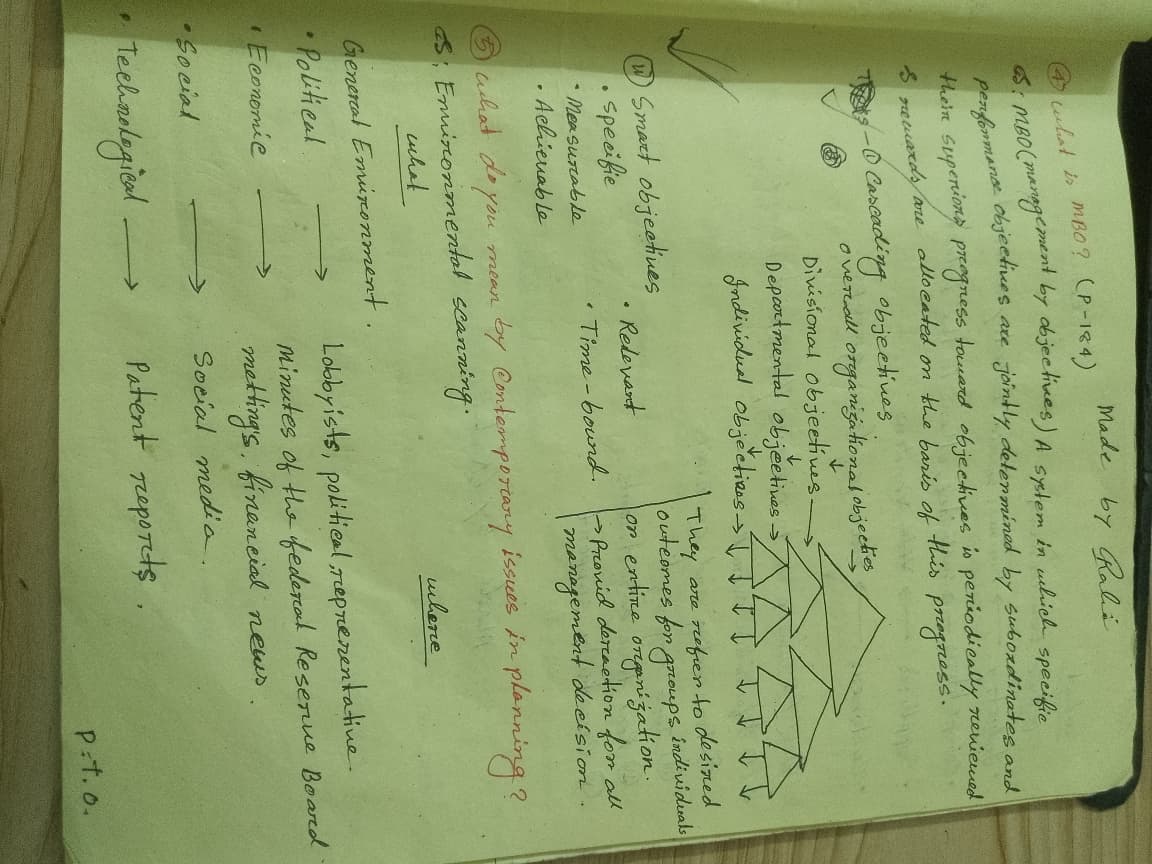 Made by Rabi
④ What is MBO? (P-184)
MBO (management by objectives) A system in which specific
performance objectives are jointly determined by subordinates and
their superiors progress toward objectives is periodically reviewed
& rewards are allocated on the basis of this progress.
① Cascading objectives
overall organizational objecties →
↓
Divisional objectives →
↓
Departmental objectives →
↓
Individual objectives →
They are refer to desired
outcomes for groups individuals
or entire organization.
→ Provid deraction for all
management decision.
⑪ Smart objectives
• Specific
• Measurable
• Achievable
• Relevant
• Time-bound.
⑤ What do you mean by Contemporary issues in planning?
Environmental scanning.
what
where
General Environment.
• Political → Lobbyists, political, reprerentative.
• Economic → Minutes of the federal Reserve Board
metting's, financial news.
• Social → Social media.
• Technological → Patent reports.
P.T.O.